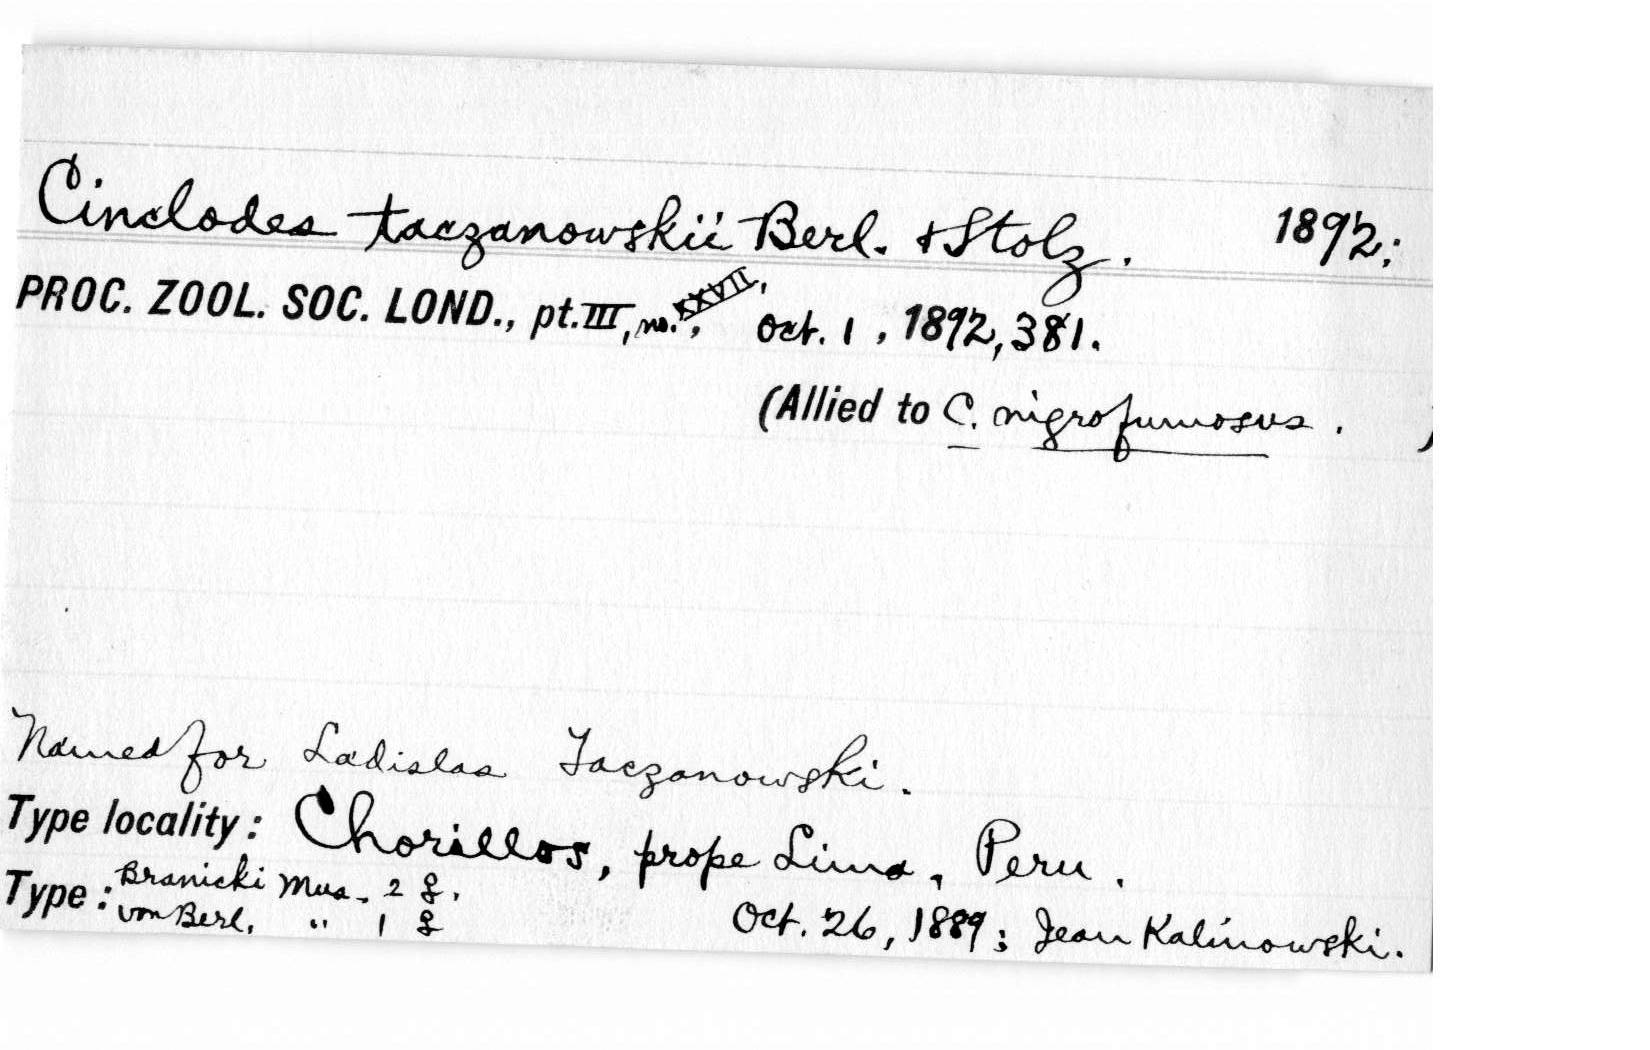 Cinclodes taczanowskii Berl. & Stolz. 1892:
PROC. ZOOL. SOC. LOND., pt. III, no. XXVII, Oct. 1, 1892, 381.
(Allied to C. nigrofumosus. )
Named for Ladislas Taczanowski.
Type locality: Chorillos, prope Lima, Peru.
Type: Branicki Mus. 2 ♀.
von Berl. " 1 ♀ Oct. 26, 1889; Jean Kalinowski.